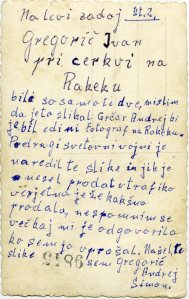 Na levi zadaj
Gregorič Ivan
pri cerkvi na
Rakeku
bile so samo te dve, mislim
da je to slikal Grčar Andrej bi
je bil edini fotograf na Rakeku.
Po drugi svetovni vojni je
naredil te slike in jih je
nesel prodat v trafiko
verjetno je že kakšno
prodala, ne spomnim se
več kaj mi je odgovorila
ko sem jo vprašal. Našel te
slike sem Gregorič
9186 Andrej
Simoni